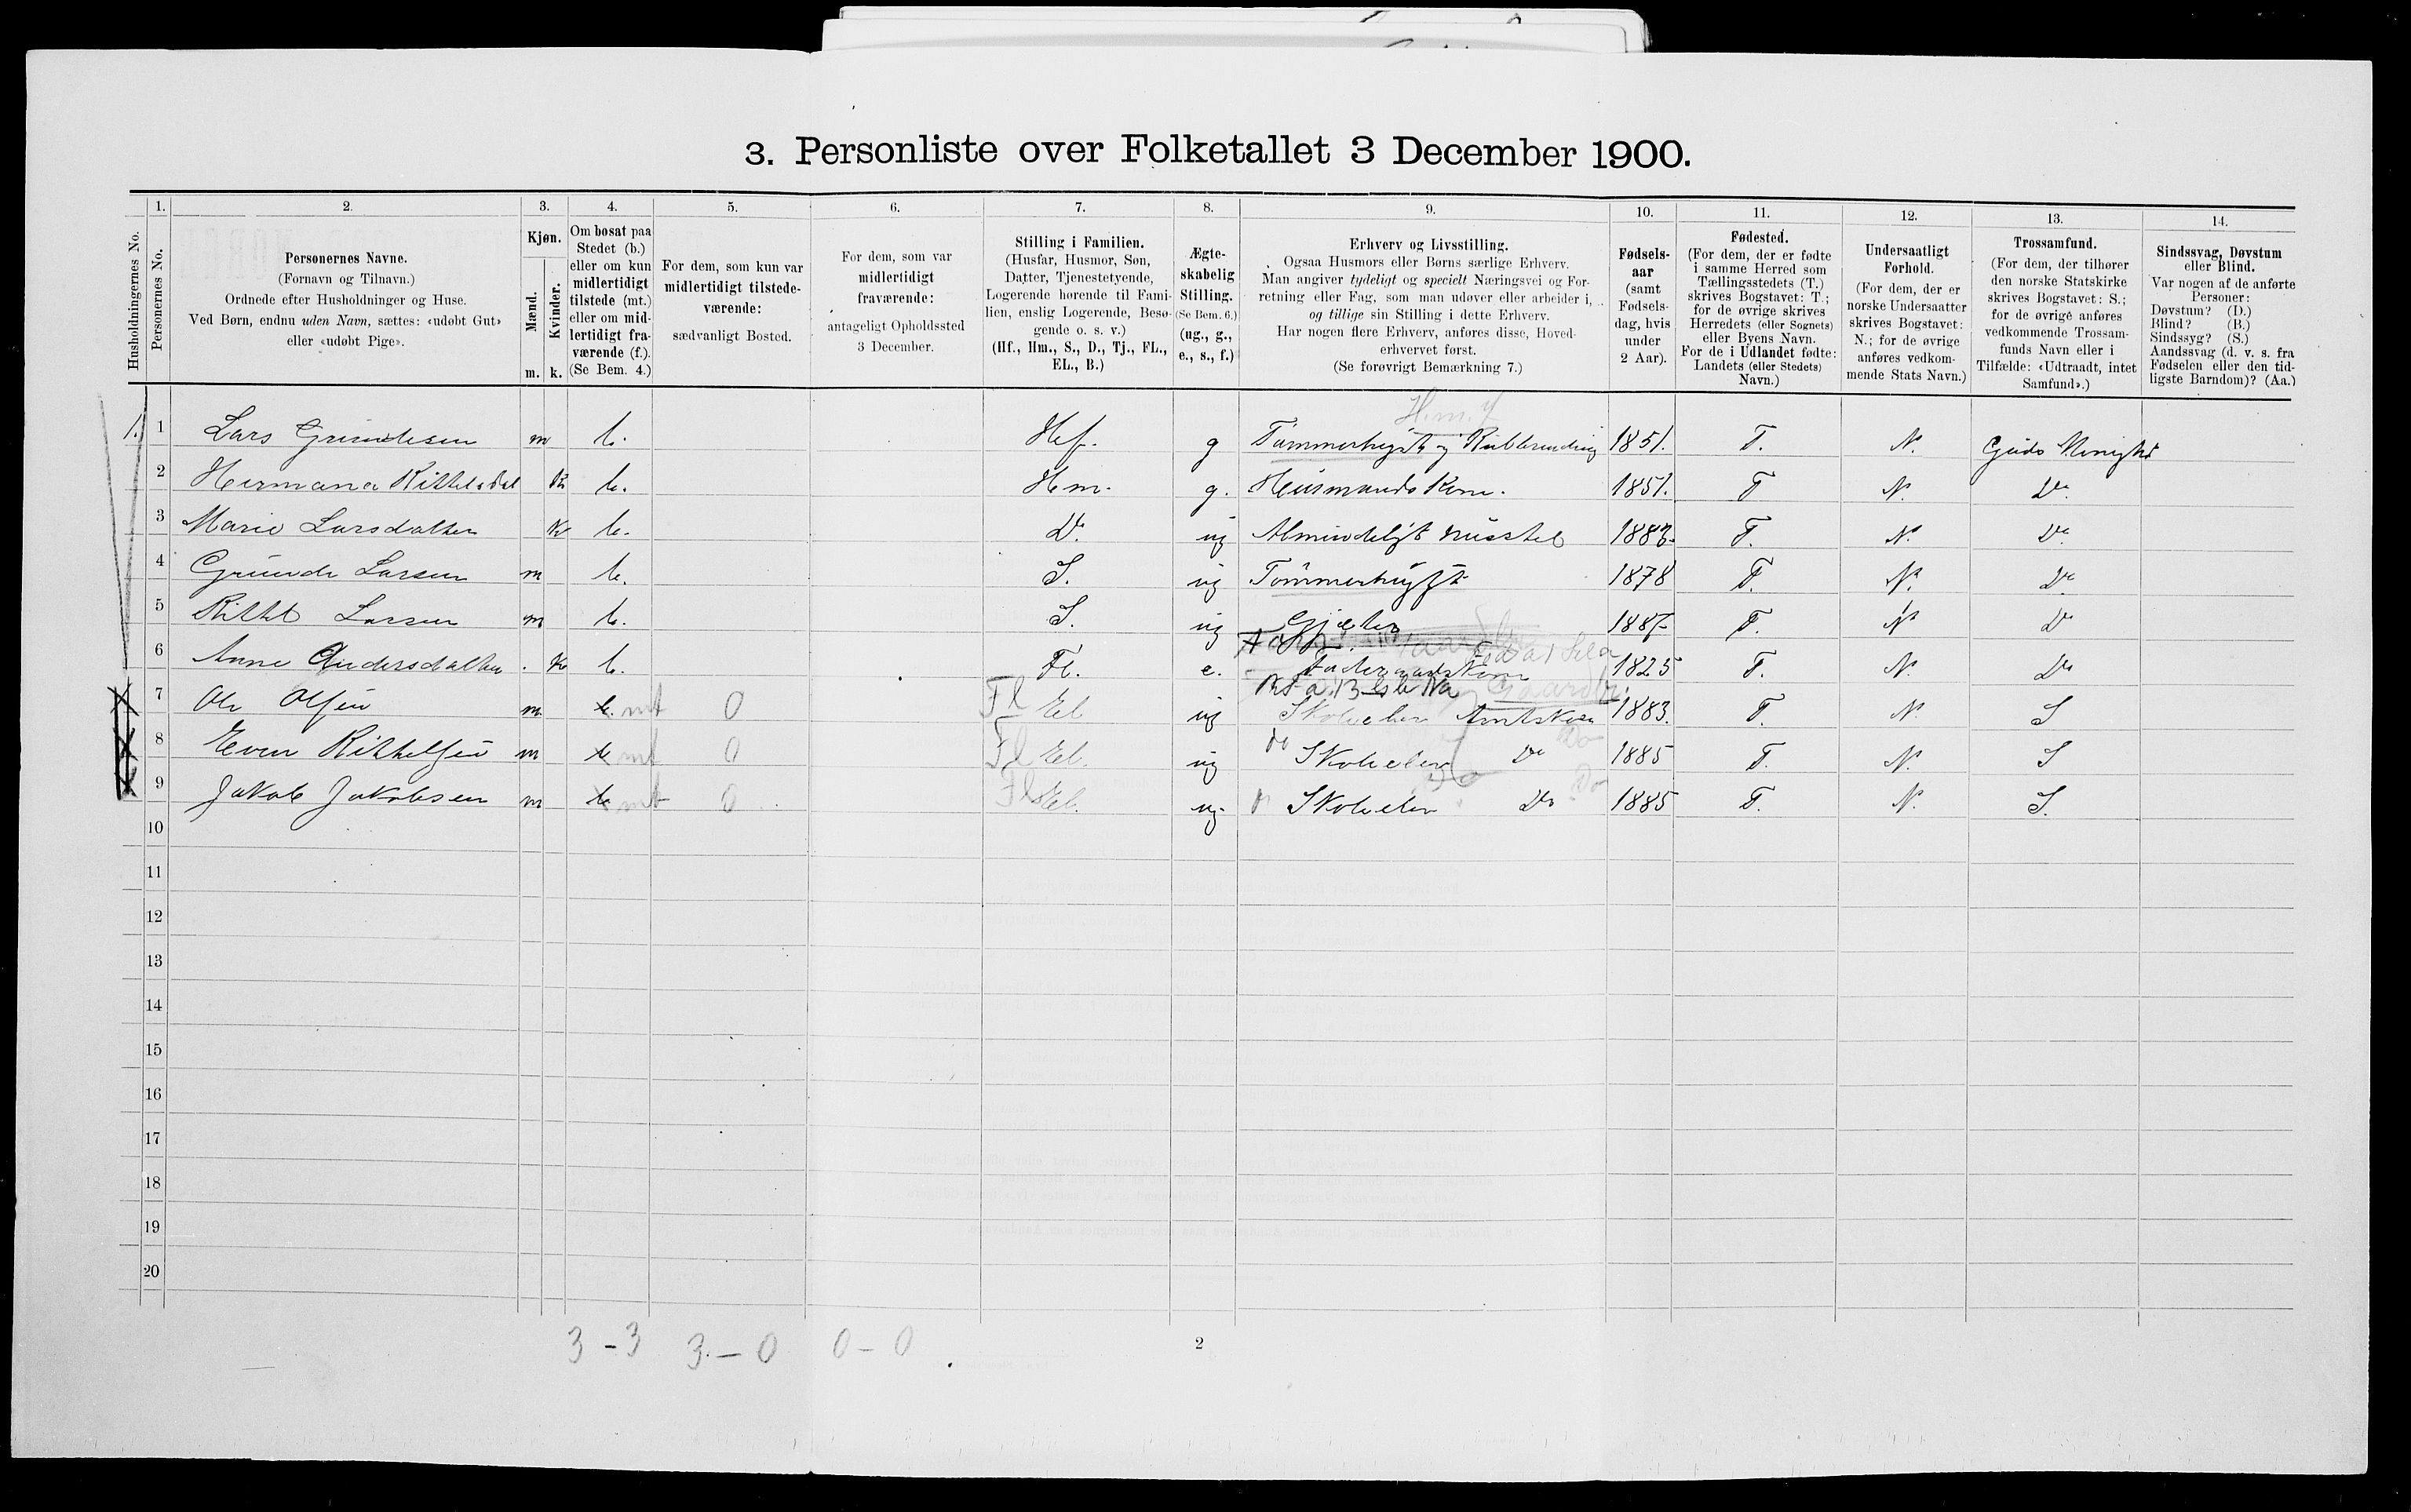 3. Personliste over Folketallet 3 December 1900.
1. 2. 3. 4. 5. 6. 7. 8. 9. 10. 11. 12. 13. 14.
Husholdningernes No.
Personernes No.
Personernes Navne.
(Fornavn og Tilnavn.)
Ordnede efter Husholdninger og Huse.
Ved Børn, endnu uden Navn, sættes: «udøbt Gut»
eller «udøbt Pige».
Kjøn.
Mænd.
Kvinder.
m. k.
Om bosat paa
Stedet (b.)
eller om kun
midlertidigt
tilstede (mt.)
eller om mid-
lertidigt fra-
værende (f.).
(Se Bem. 4.)
For dem, som kun var
midlertidigt tilstede-
værende:
sædvanligt Bosted.
For dem, som var
midlertidigt
fraværende:
antageligt Opholdssted
3 December.
Stilling i Familien.
(Husfar, Husmor, Søn,
Datter, Tjenestetyende,
Logerende hørende til Fami-
lien, enslig Logerende, Besø-
gende o. s. v.)
(Hf., Hm., S., D., Tj., FL.,
EL., B.)
Ægte-
skabelig
Stilling.
(Se Bem. 6.)
(ug., g.,
e., s., f.)
Erhverv og Livsstilling.
Ogsaa Husmors eller Børns særlige Erhverv.
Man angiver tydeligt og specielt Næringsvei og For-
retning eller Fag, som man udøver eller arbeider i,
og tillige sin Stilling i dette Erhverv.
Har nogen flere Erhverv, anføres disse, Hoved-
erhvervet først.
(Se forøvrigt Bemærkning 7.)
Fødsels-
aar
(samt
Fødsels-
dag, hvis
under
2 Aar).
Fødested.
(For dem, der er fødte
i samme Herred som
Tællingsstedets (T.)
skrives Bogstavet: T.;
for de øvrige skrives
Herredets (eller Sognets)
eller Byens Navn.
For de i Udlandet fødte:
Landets (eller Stedets)
Navn.)
Undersaatligt
Forhold.
(For dem, der er
norske Undersaatter
skrives Bogstavet:
N.; for de øvrige
anføres vedkom-
mende Stats Navn.)
Trossamfund.
(For dem, der tilhører
den norske Statskirke
skrives Bogstavet: S.;
for de øvrige anføres
vedkommende Trossam-
funds Navn eller i
Tilfælde: «Udtraadt, intet
Samfund».)
Sindssvag, Døvstum
eller Blind.
Var nogen af de anførte
Personer:
Døvstum? (D.)
Blind? (B.)
Sindssyg? (S.)
Aandssvag (d. v. s. fra
Fødselen eller den tid-
ligste Barndom)? (Aa.)
H.m.
1. 1 Lars Grundesen m b. Hf. g Tømmerhugst og 1851. T. N. Guds Menighed
2 Hermana Kittelsdal k b. Hm. g. Husmandskone. 1851. T N. Do
3 Marie Larsdatter k b. D. ug Almindeligt Husstel 1883. T. N. Do
4 Grunde Larsen m b. S. ug Tømmerhugst 1878 T. N. Do
5 Kittel Larsen m b. S. ug Gjæter 1887 T. N Do
6 Anne Andersdatter k b. Fl. e. 1825 T. N. Do
7 Ole Olsen m b. mt 0 Fl El ug Skoleelev Amtskole 1883. T. N. S
8 Even Kittelsen m b mt 0 Fl El. ug Do Skoleelev Do 1885 T. N. S
9 Jakob Jakobsen m b mt 0 Fl El. ug. Skoleelev Do 1885 T. N. S.
10
11
12
13
14
15
16
17
18
19
20
3 - 3 3 - 0 0 - 0
2